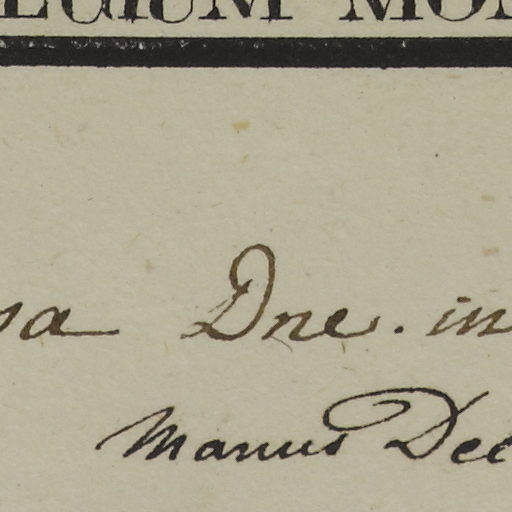 EGIUM MON
sa Dne. in
Manus Dee